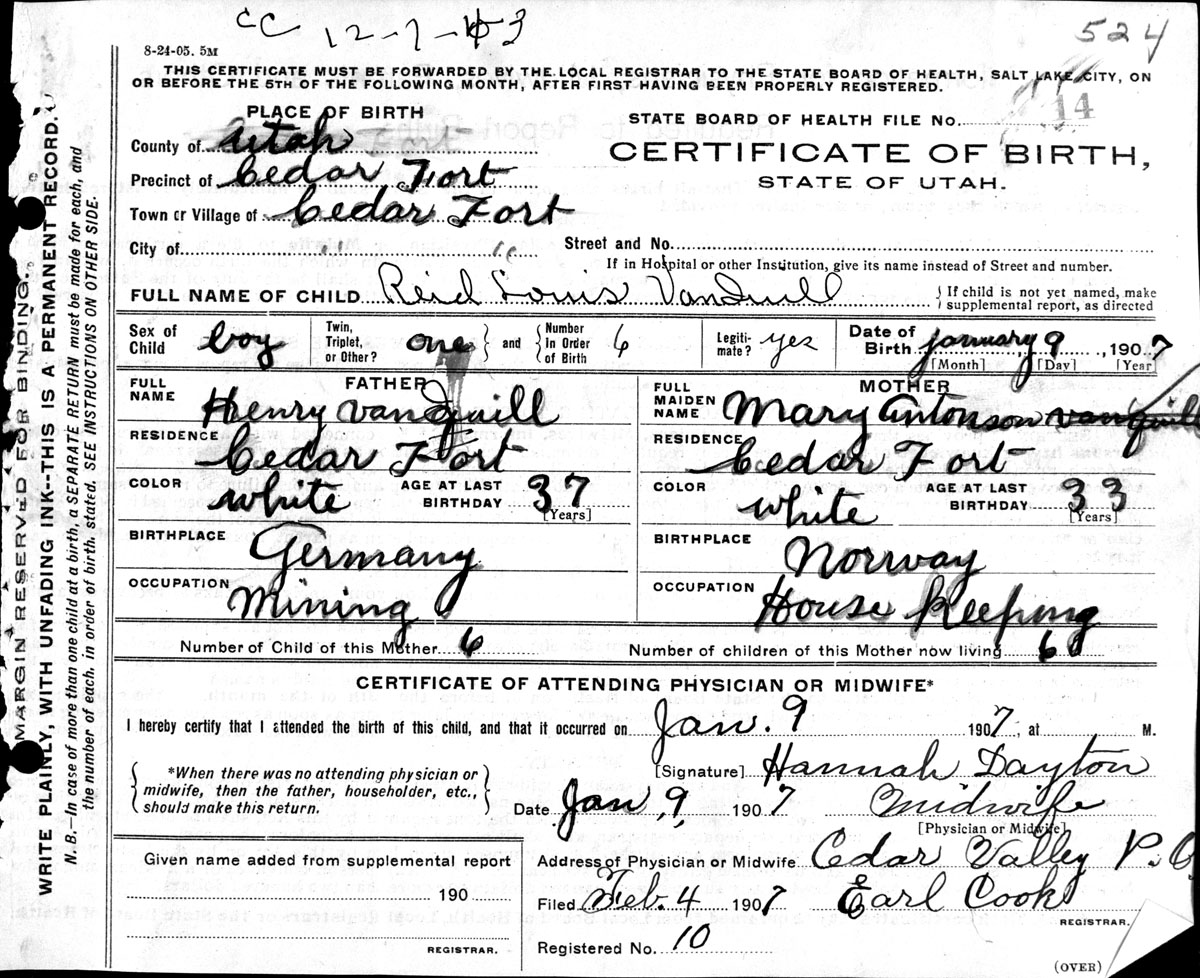 CC 12-7-43
524
8-24-05. 5M
THIS CERTIFICATE MUST BE FORWARDED BY THE LOCAL REGISTRAR TO THE STATE BOARD OF HEALTH, SALT LAKE CITY, ON
OR BEFORE THE 5TH OF THE FOLLOWING MONTH, AFTER FIRST HAVING BEEN PROPERLY REGISTERED.
PLACE OF BIRTH
County of Utah
Precinct of Cedar Fort
Town or Village of Cedar Fort
City of " "
STATE BOARD OF HEALTH FILE No. 14
CERTIFICATE OF BIRTH,
STATE OF UTAH.
Street and No.
If in Hospital or other Institution, give its name instead of Street and number.
FULL NAME OF CHILD Reid Louis Vanquill
If child is not yet named, make
supplemental report, as directed
Sex of Child boy
Twin, Triplet, or Other? one and Number In Order of Birth 6
Legitimate? yes
Date of Birth January 9, 1907
[Month] [Day] [Year]
FATHER
FULL NAME Henry Vanquill
RESIDENCE Cedar Fort
COLOR white AGE AT LAST BIRTHDAY 37
[Years]
BIRTHPLACE Germany
OCCUPATION Mining
MOTHER
FULL MAIDEN NAME Mary Antonson Vanquill
RESIDENCE Cedar Fort
COLOR white AGE AT LAST BIRTHDAY 33
[Years]
BIRTHPLACE Norway
OCCUPATION House Keeping
Number of Child of this Mother 6 Number of children of this Mother now living 6
CERTIFICATE OF ATTENDING PHYSICIAN OR MIDWIFE*
I hereby certify that I attended the birth of this child, and that it occurred on Jan. 9 1907, at M.
*When there was no attending physician or
midwife, then the father, householder, etc.,
should make this return.
[Signature] Hannah Dayton
Date Jan, 9, 1907 Midwife
[Physician or Midwife]
Given name added from supplemental report
190
REGISTRAR.
Address of Physician or Midwife Cedar Valley P.O
Filed Feb. 4 1907 Earl Cook
REGISTRAR.
Registered No. 10
(OVER)
MARGIN RESERVED FOR BINDING.
WRITE PLAINLY, WITH UNFADING INK--THIS IS A PERMANENT RECORD.
N.B.—In case of more than one child at a birth, a SEPARATE RETURN must be made for each, and
the number of each, in order of birth, stated. SEE INSTRUCTIONS ON OTHER SIDE.